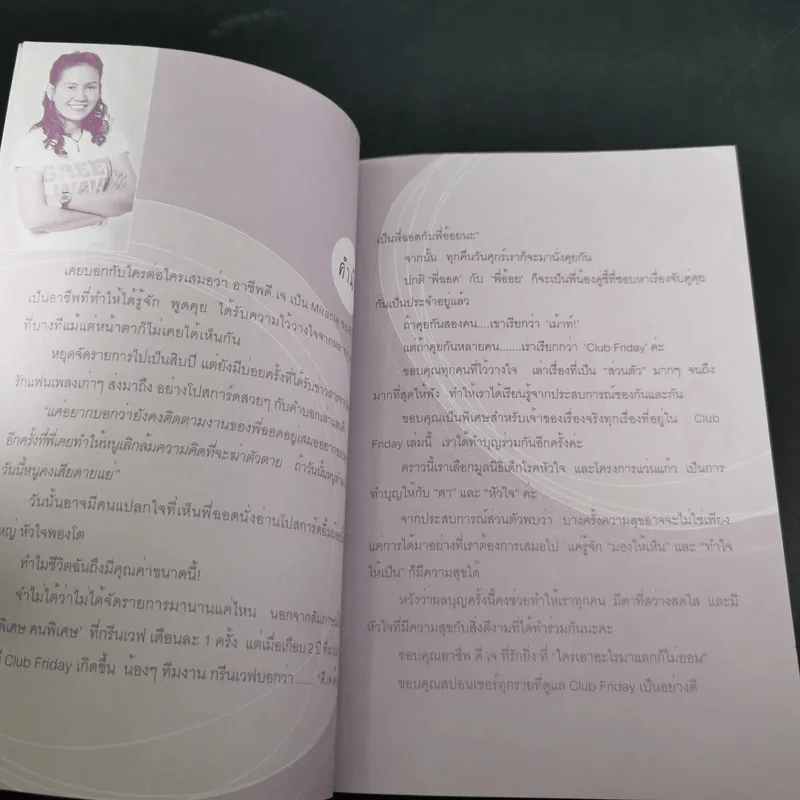 GREEN
WAVE
เคยบอกกับใครต่อใครเสมอว่า อาชีพดี.เจ เป็น Miracle
เป็นอาชีพที่ทำให้ได้รู้จัก พูดคุย ได้รับความไว้วางใจจาก
ที่บางทีแม้แต่หน้าตาก็ไม่เคยได้เห็นกัน
หยุดจัดรายการไปเป็นสิบปี แต่ยังมีบ่อยครั้งที่ได้รับ
รักแฟนเพลงเก่าๆ ส่งมาถึง อย่างโปสการ์ดสวยๆ กับคำบอกเล่า
"แค่อยากบอกว่ายังคงติดตามงานของพี่ฉอดอยู่เสมอ
อีกครั้งที่พี่เคยทำให้หนูเลิกล้มความคิดที่จะฆ่าตัวตาย ถ้าวันนั้น
วันนี้หนูคงเสียดายแย่"
วันนั้นอาจมีคนแปลกใจที่เห็นพี่ฉอดนั่งอ่านโปสการ์ด
หญ่ หัวใจพองโต
ทำไมชีวิตฉันถึงมีคุณค่าขนาดนี้!
จำไม่ได้ว่าไม่ได้จัดรายการมานานแค่ไหน นอกจากสัมภาษณ์
พิเศษ คนพิเศษ' ที่กรีนเวฟ เดือนละ 1 ครั้ง แต่เมื่อเกือบ 2 ปี
Club Friday เกิดขึ้น น้องๆ ทีมงาน กรีนเวฟบอกว่า.......
เป็นพี่ฉอดกับพี่อ้อยนะ"
จากนั้น ทุกคืนวันศุกร์เราก็จะมานั่งคุยกัน
ปกติ 'พี่ฉอด' กับ 'พี่อ้อย' ก็จะเป็นพี่น้องคู่ซี้ที่ชอบหาเรื่องจับคู่คุย
กันเป็นประจำอยู่แล้ว
ถ้าคุยกันสองคน....เขาเรียกว่า 'เม้าท์!'
แต่ถ้าคุยกันหลายคน.......เราเรียกว่า 'Club Friday' ค่ะ
ขอบคุณทุกคนที่ไว้วางใจ เล่าเรื่องที่เป็น "ส่วนตัว" มากๆ จนถึง
มากที่สุดให้ฟัง ทำให้เราได้เรียนรู้จากประสบการณ์ของกันและกัน
ขอบคุณเป็นพิเศษสำหรับเจ้าของเรื่องจริงทุกเรื่องที่อยู่ใน Club
Friday เล่มนี้ เราได้ทำบุญร่วมกันอีกครั้งค่ะ
คราวนี้เราเลือกมูลนิธิเด็กโรคหัวใจ และโครงการแว่นแก้ว เป็นการ
ทำบุญให้กับ "ตา" และ "หัวใจ" ค่ะ
จากประสบการณ์ส่วนตัวพบว่า บางครั้งความสุขอาจจะไม่ใช่เพียง
แค่การได้มาอย่างที่เราต้องการเสมอไป แค่รู้จัก "มองให้เห็น" และ "ทำใจ
ให้เป็น" ก็มีความสุขได้
หวังว่าผลบุญครั้งนี้คงช่วยทำให้เราทุกคน มีตาที่สว่างสดใส และมี
หัวใจที่มีความสุขกับสิ่งดีงามที่ได้ทำร่วมกันนะคะ
ขอบคุณอาชีพ ดี.เจ ที่รักยิ่ง ที่ "ใครเอาอะไรมาแลกก็ไม่ยอม"
ขอบคุณสปอนเซอร์ทุกรายที่ดูแล Club Friday เป็นอย่างดี